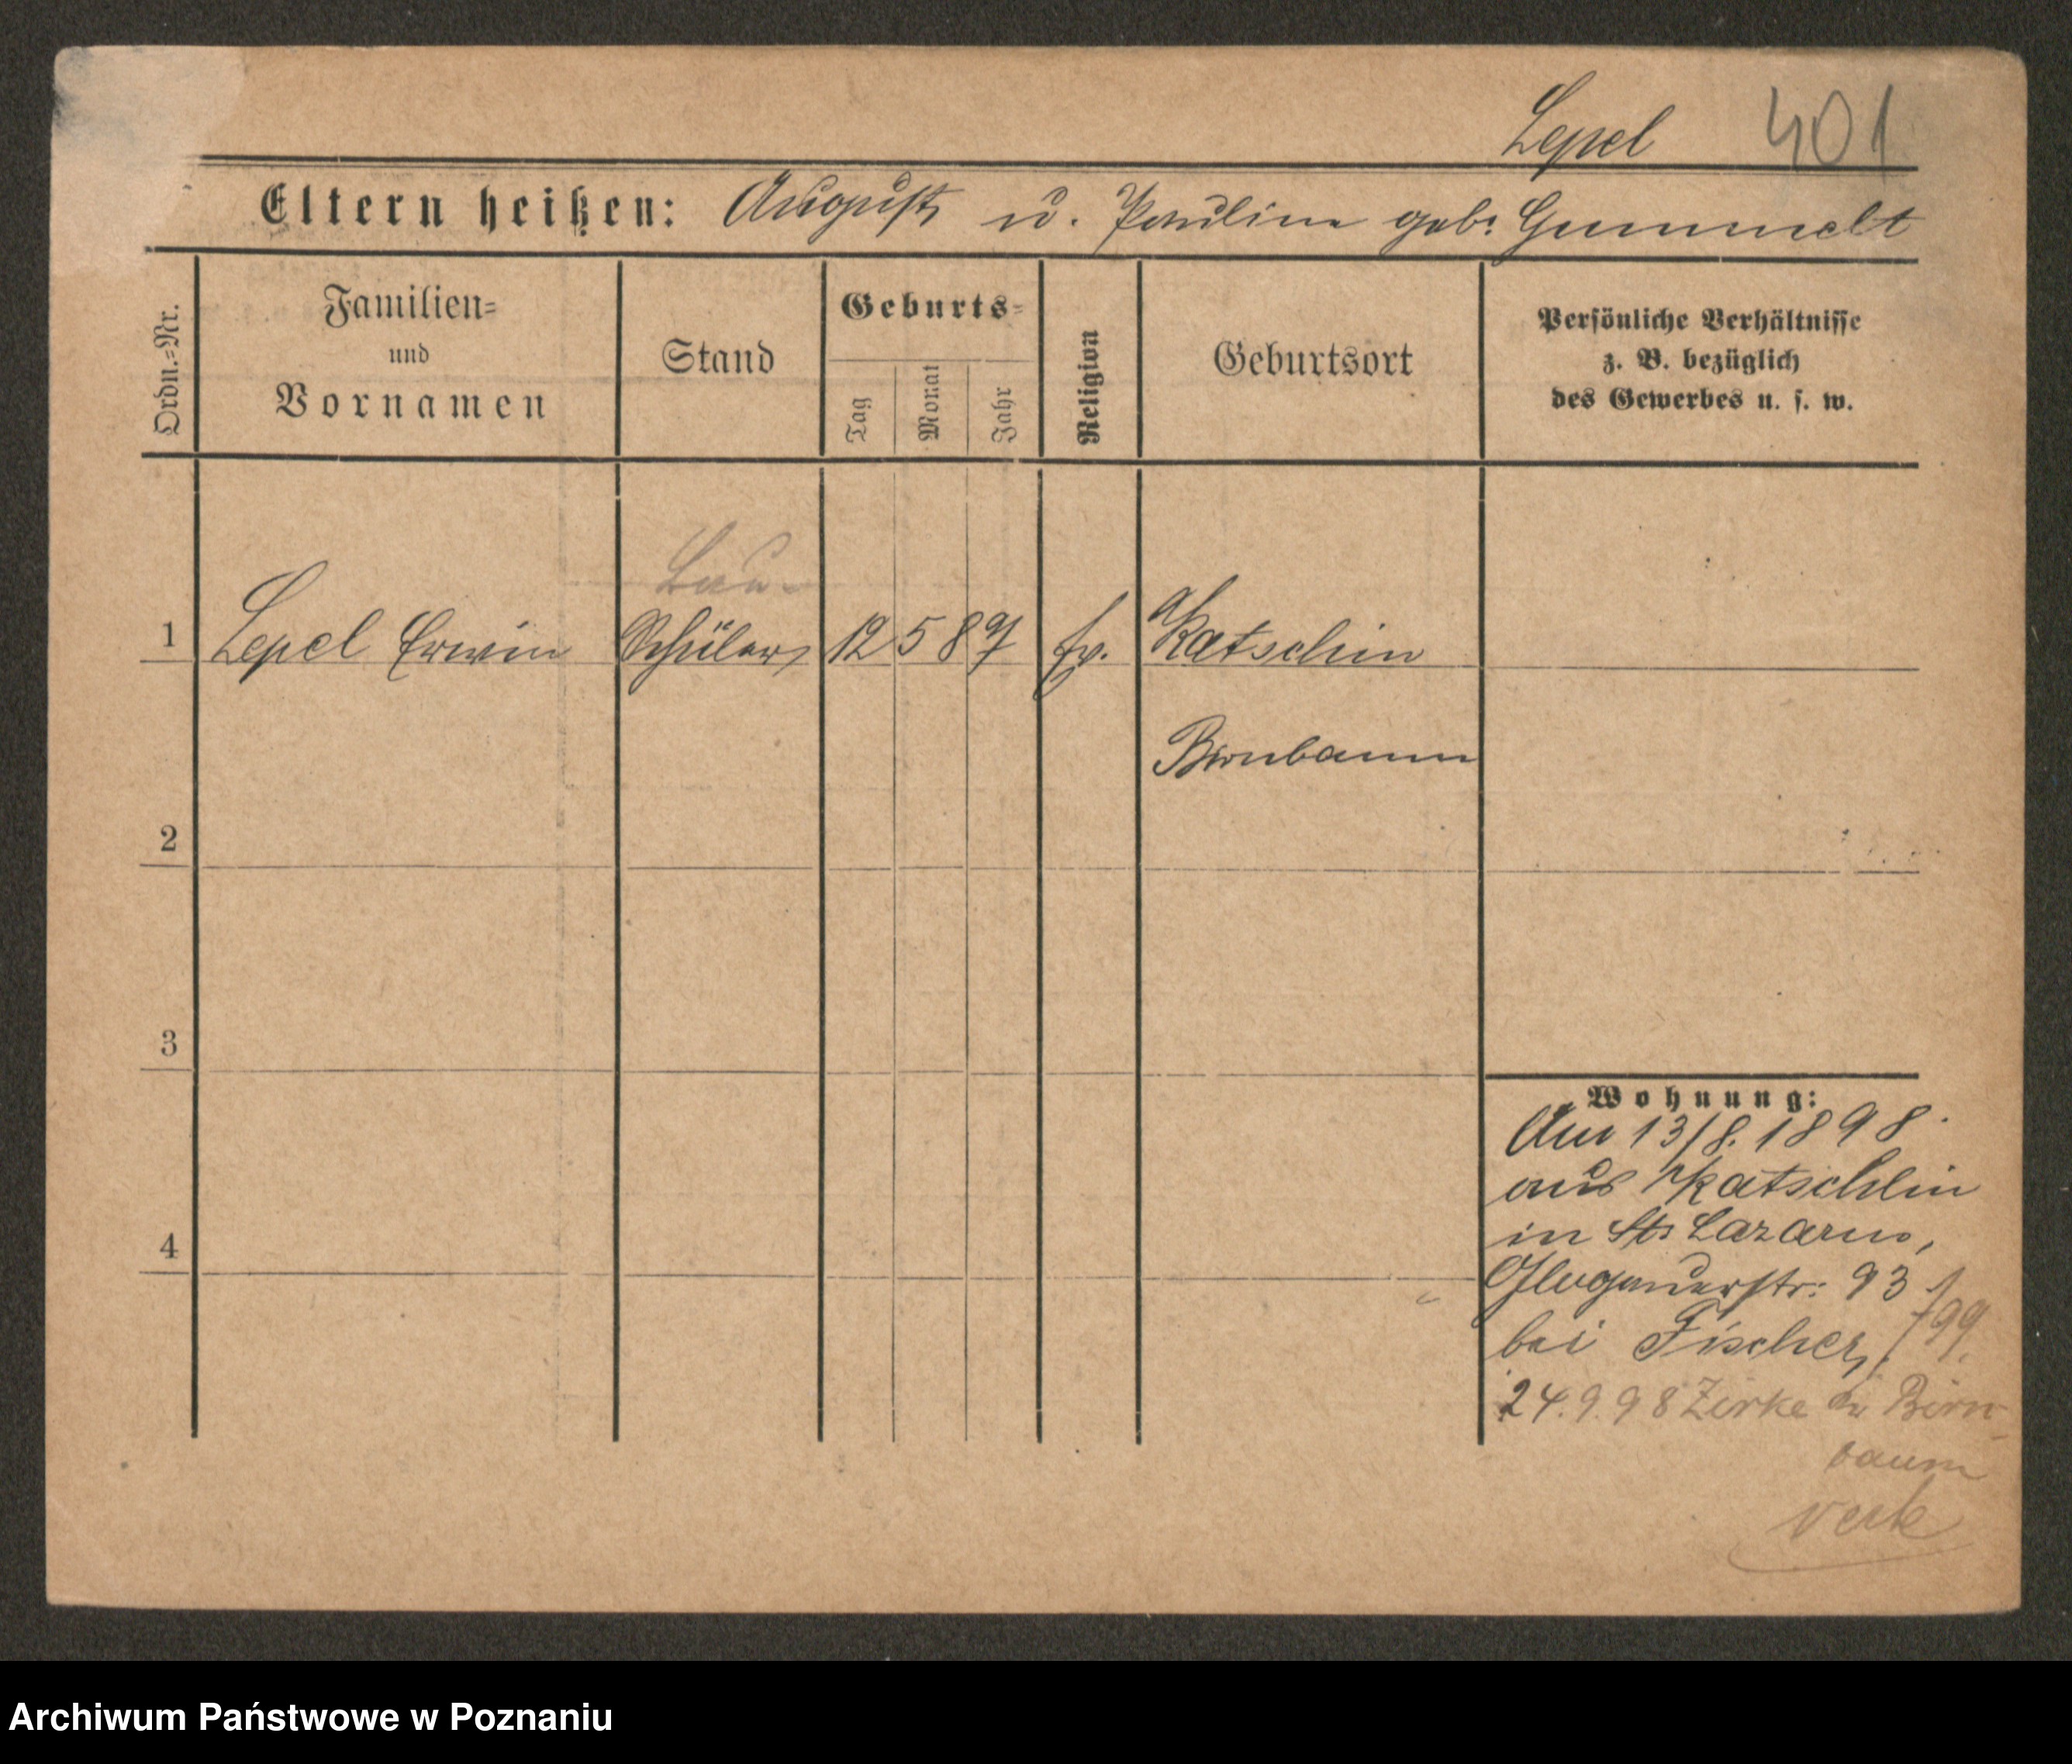 Lepel 401
Eltern heißen: August u. Pauline geb. Gummelt
Ordn.=Nr.
Familien=
und
Vornamen
Stand
Geburts=
Tag
Monat
Jahr
Religion
Geburtsort
Persönliche Verhältnisse
z. B. bezüglich
des Gewerbes u. s. w.
Bau-
1 Lepel Erwin Schüler 12 5 87 Ev. Katschlin
Birnbaum
2
3
Wohnung:
Am 13/8. 1898.
aus Katschlin
in St. Lazarus,
4
Glogauerstr. 93
bei Fischer, /99.
24.9.98 Zirke Kr Birn-
baum
Archiwum Państwowe w Poznaniu